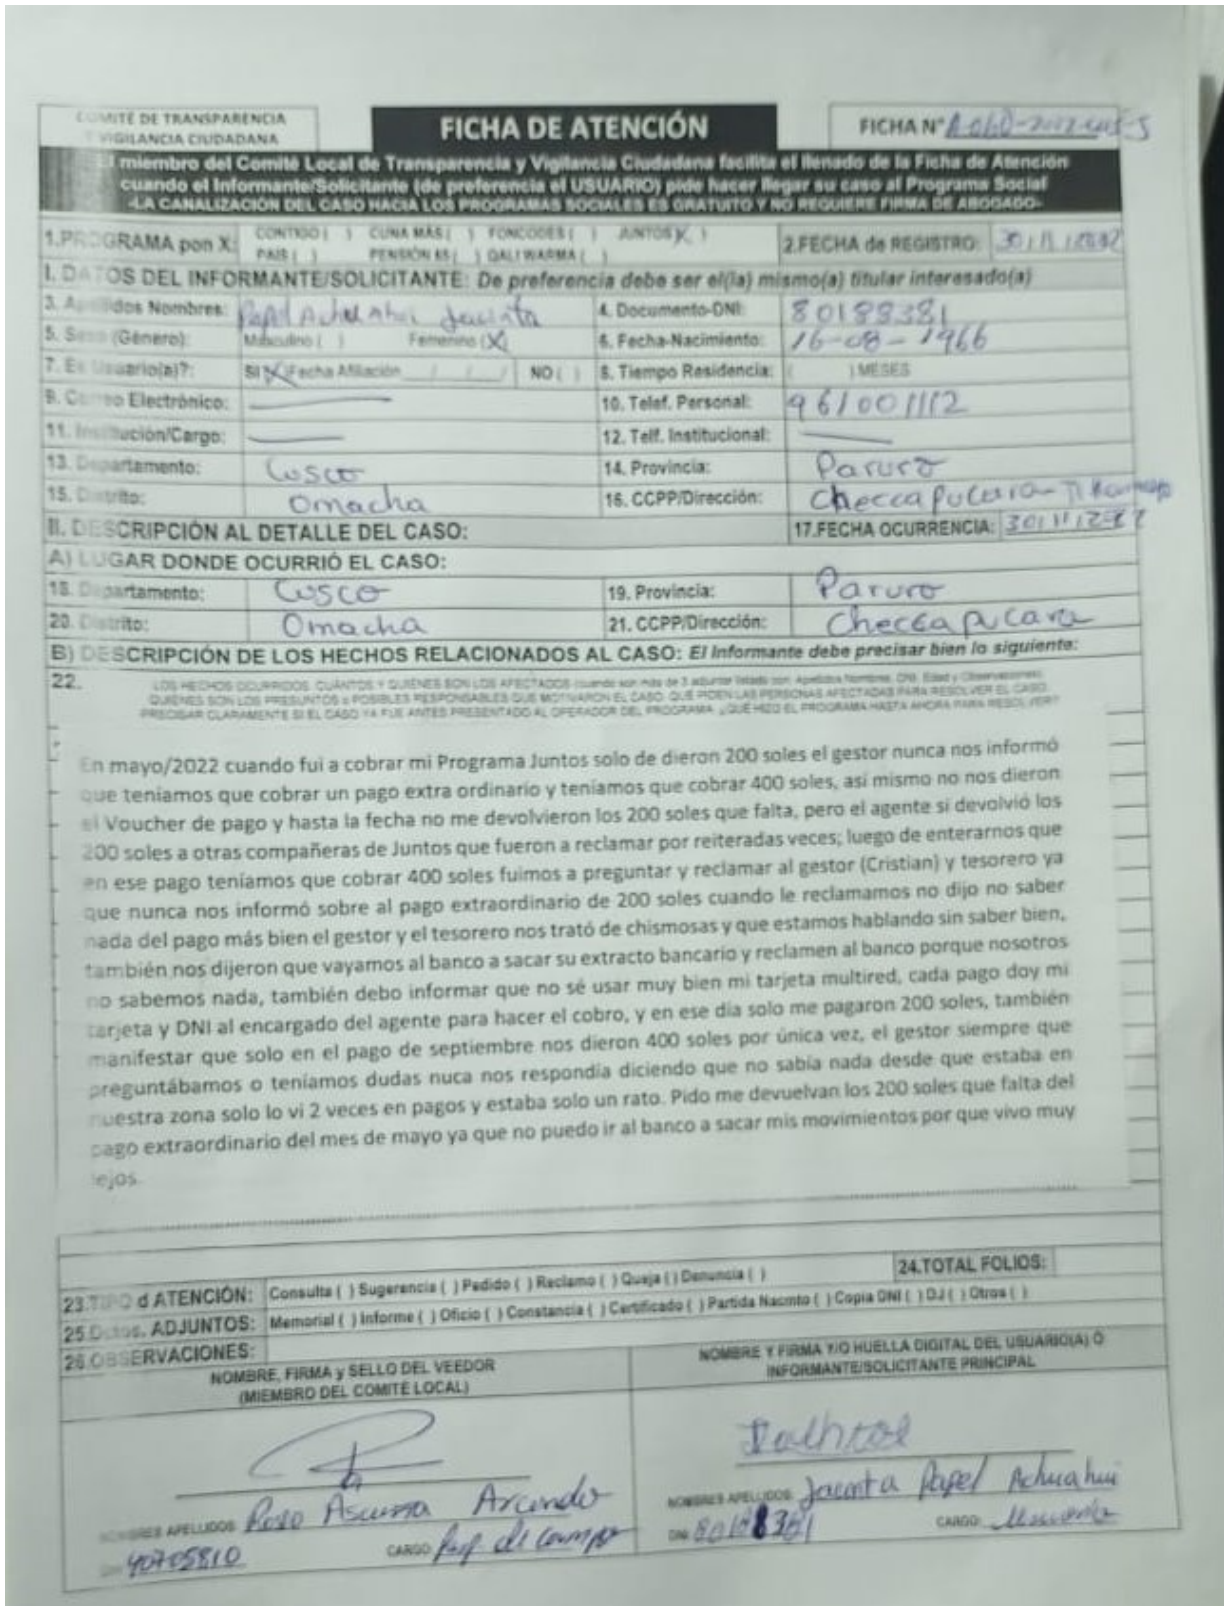 COMITÉ DE TRANSPARENCIA
Y VIGILANCIA CIUDADANA
FICHA DE ATENCIÓN
FICHA N°
El miembro del Comité Local de Transparencia y Vigilancia Ciudadana facilita el llenado de la Ficha de Atención
cuando el Informante/Solicitante (de preferencia el USUARIO) pide hacer llegar su caso al Programa Social
-LA CANALIZACIÓN DEL CASO HACIA LOS PROGRAMAS SOCIALES ES GRATUITO Y NO REQUIERE FIRMA DE ABOGADO-
1.PROGRAMA pon X: CONTIGO ( ) CUNA MÁS ( ) FONCODES ( ) JUNTOS (X )
PAIS ( ) PENSIÓN 65 ( ) QALI WARMA ( )
2.FECHA de REGISTRO: 30/11/2022
I. DATOS DEL INFORMANTE/SOLICITANTE: De preferencia debe ser el(la) mismo(a) titular interesado(a)
3. Apellidos Nombres: Papel Jacinta 4. Documento-DNI: 80188381
5. Sexo (Género): Masculino ( ) Femenino (X) 6. Fecha-Nacimiento: 16-08-1966
7. Es Usuario(a)?: SI (X) Fecha Afiliación / / / NO ( ) 8. Tiempo Residencia: ( ) MESES
9. Correo Electrónico: 10. Telef. Personal: 961001112
11. Institución/Cargo: 12. Telf. Institucional:
13. Departamento: Cusco 14. Provincia: Paruro
15. Distrito: Omacha 16. CCPP/Dirección: Checcapucara-
II. DESCRIPCIÓN AL DETALLE DEL CASO: 17.FECHA OCURRENCIA: 30/11/2022
A) LUGAR DONDE OCURRIÓ EL CASO:
18. Departamento: Cusco 19. Provincia: Paruro
20. Distrito: Omacha 21. CCPP/Dirección: Checcapucara
B) DESCRIPCIÓN DE LOS HECHOS RELACIONADOS AL CASO: El Informante debe precisar bien lo siguiente:
22. LOS HECHOS OCURRIDOS. CUÁNTOS Y QUIÉNES SON LOS AFECTADOS (cuando son más de 3 adjuntar listado con: Apellidos Nombres, DNI, Edad y Observaciones).
QUIÉNES SON LOS PRESUNTOS o POSIBLES RESPONSABLES QUE MOTIVARON EL CASO. QUÉ PIDEN LAS PERSONAS AFECTADAS PARA RESOLVER EL CASO.
PRECISAR CLARAMENTE SI EL CASO YA FUE ANTES PRESENTADO AL OPERADOR DEL PROGRAMA. ¿QUÉ HIZO EL PROGRAMA HASTA AHORA PARA RESOLVER?
En mayo/2022 cuando fui a cobrar mi Programa Juntos solo de dieron 200 soles el gestor nunca nos informó
que teníamos que cobrar un pago extra ordinario y teníamos que cobrar 400 soles, así mismo no nos dieron
el Voucher de pago y hasta la fecha no me devolvieron los 200 soles que falta, pero el agente si devolvió los
200 soles a otras compañeras de Juntos que fueron a reclamar por reiteradas veces; luego de enterarnos que
en ese pago teníamos que cobrar 400 soles fuimos a preguntar y reclamar al gestor (Cristian) y tesorero ya
que nunca nos informó sobre al pago extraordinario de 200 soles cuando le reclamamos no dijo no saber
nada del pago más bien el gestor y el tesorero nos trató de chismosas y que estamos hablando sin saber bien,
también nos dijeron que vayamos al banco a sacar su extracto bancario y reclamen al banco porque nosotros
no sabemos nada, también debo informar que no sé usar muy bien mi tarjeta multired, cada pago doy mi
tarjeta y DNI al encargado del agente para hacer el cobro, y en ese día solo me pagaron 200 soles, también
manifestar que solo en el pago de septiembre nos dieron 400 soles por única vez, el gestor siempre que
preguntábamos o teníamos dudas nuca nos respondía diciendo que no sabía nada desde que estaba en
nuestra zona solo lo vi 2 veces en pagos y estaba solo un rato. Pido me devuelvan los 200 soles que falta del
pago extraordinario del mes de mayo ya que no puedo ir al banco a sacar mis movimientos por que vivo muy
lejos.
23.TIPO d ATENCIÓN: Consulta ( ) Sugerencia ( ) Pedido ( ) Reclamo ( ) Queja ( ) Denuncia ( ) 24.TOTAL FOLIOS:
25.Dctos. ADJUNTOS: Memorial ( ) Informe ( ) Oficio ( ) Constancia ( ) Certificado ( ) Partida Nacmto ( ) Copia DNI ( ) DJ ( ) Otros ( )
26.OBSERVACIONES:
NOMBRE, FIRMA y SELLO DEL VEEDOR
(MIEMBRO DEL COMITÉ LOCAL)
NOMBRE Y FIRMA Y/O HUELLA DIGITAL DEL USUARIO(A) Ó
INFORMANTE/SOLICITANTE PRINCIPAL
NOMBRES APELLIDOS: Ascarza
DNI: 40705810 CARGO:
NOMBRES APELLIDOS: Jacinta Papel Achuahui
DNI: 80188381 CARGO: Usuaria